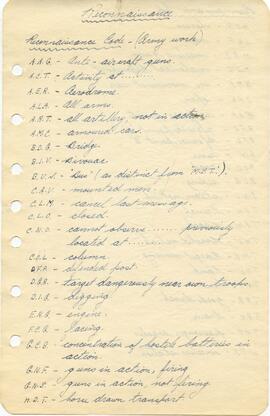 Reconnaissance
Reconnaissance Code - (Army work)
A.A.G. - Anti-aircraft guns.
A.C.T. - Activity at........
A.E.R. - Aerodrome.
A.L.A. - All arms.
A.R.T. - all artillery, not in action
A.M.C. - armoured cars.
B.D.G. - Bridge.
B.I.V. - Bivouac.
B.U.S. - 'Bus' (as distinct from M.B.T.).
C.A.V. - mounted men.
C.L.M. - cancel last message.
C.L.O. - closed.
C.N.O. - cannot observe ...... previously
located at..........
C.O.L. - column
D.F.P. - defended post.
D.G.R. - target dangerously near own troops.
D.I.G. - digging.
E.N.G. - engine.
F.C.G. - Facing.
G.C.B. - concentration of hostile batteries in
action.
G.N.F. - guns in action, firing
G.N.S. - guns in action, not firing.
H.D.T. - horse drawn transport.